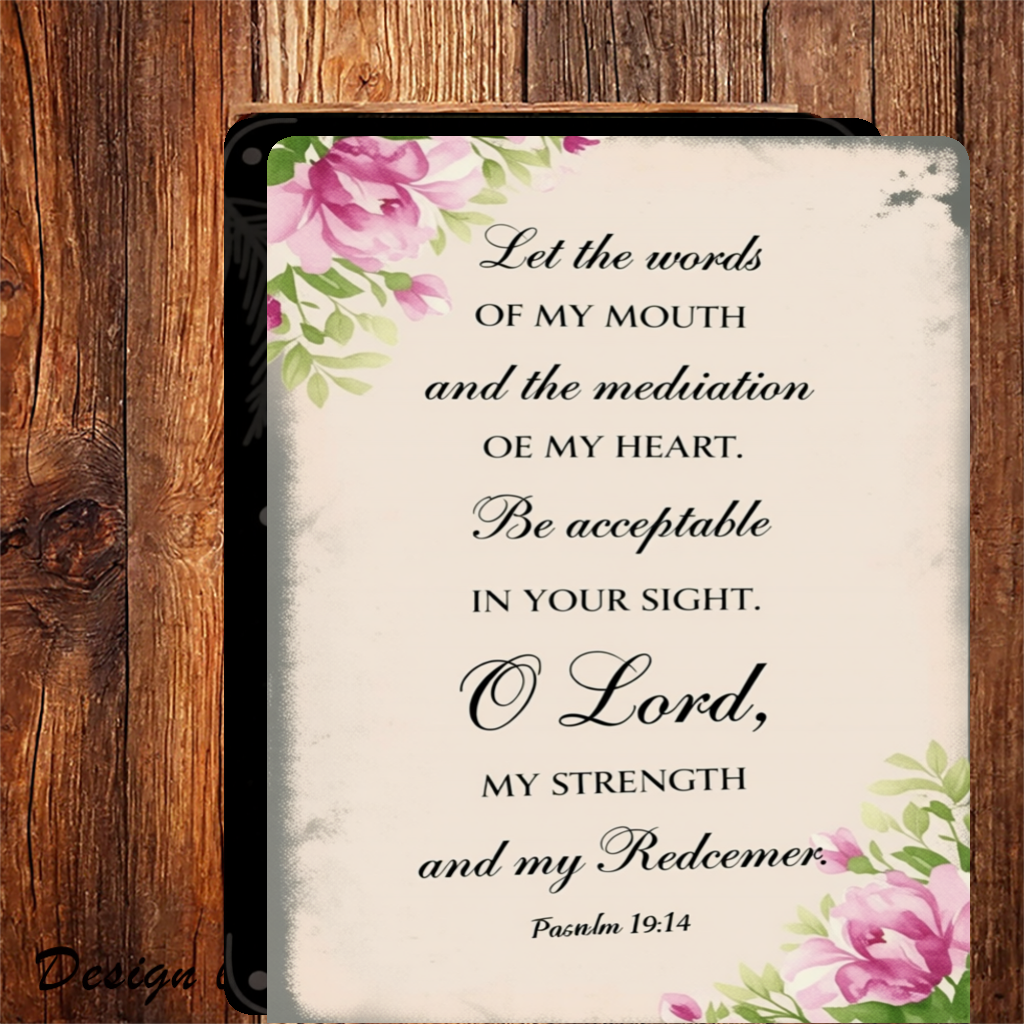 Let the words
OF MY MOUTH
and the mediiation
OE MY HEART.
Be acceptable
IN YOUR SIGHT.
O Lord,
MY STRENGTH
and my Redcemer.
Pasnlm 19:14
Design